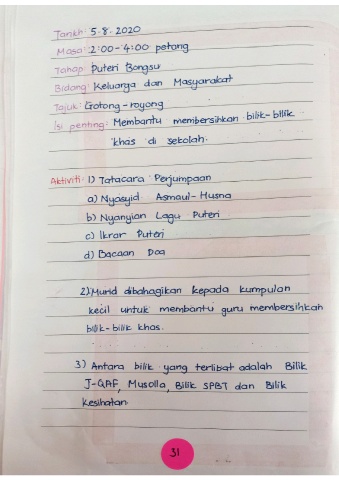 Tarikh: 5.8.2020
Masa: 2:00-4:00 petang
Tahap: Puteri Bongsu
Bidang: Keluarga dan Masyarakat
Tajuk: Gotong-royong
Isi penting: Membantu membersihkan bilik-bilik
khas di sekolah.
Aktiviti: 1) Tatacara Perjumpaan
a) Nyasyid Asmaul-Husna
b) Nyanyian Lagu Puteri
c) Ikrar Puteri
d) Bacaan Doa
2) Murid dibahagikan kepada kumpulan
kecil untuk membantu guru membersihkan
bilik-bilik khas.
3) Antara bilik yang terlibat adalah Bilik
J-QAF, Musolla, Bilik SPBT dan Bilik
Kesihatan.
31